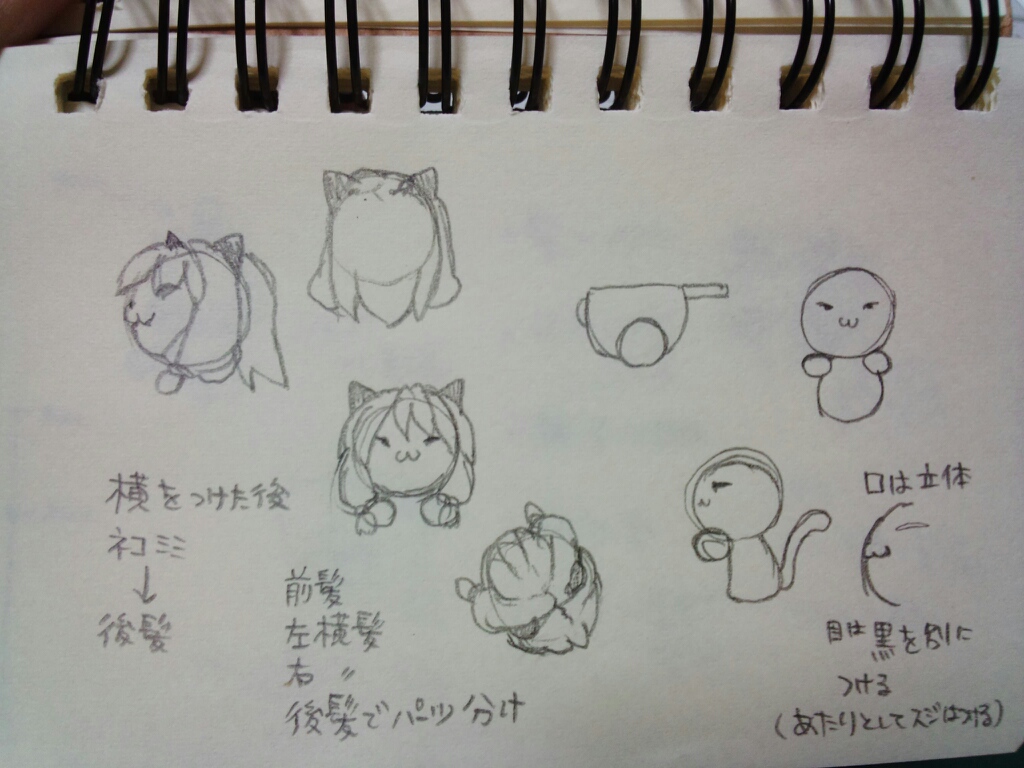 横をつけた後
ネコミミ
↓
後髪
前髪
左横髪
右 〃
後髪でパーツ分け
口は立体
目は黒を別に
つける
(あたりとしてスジはつける)